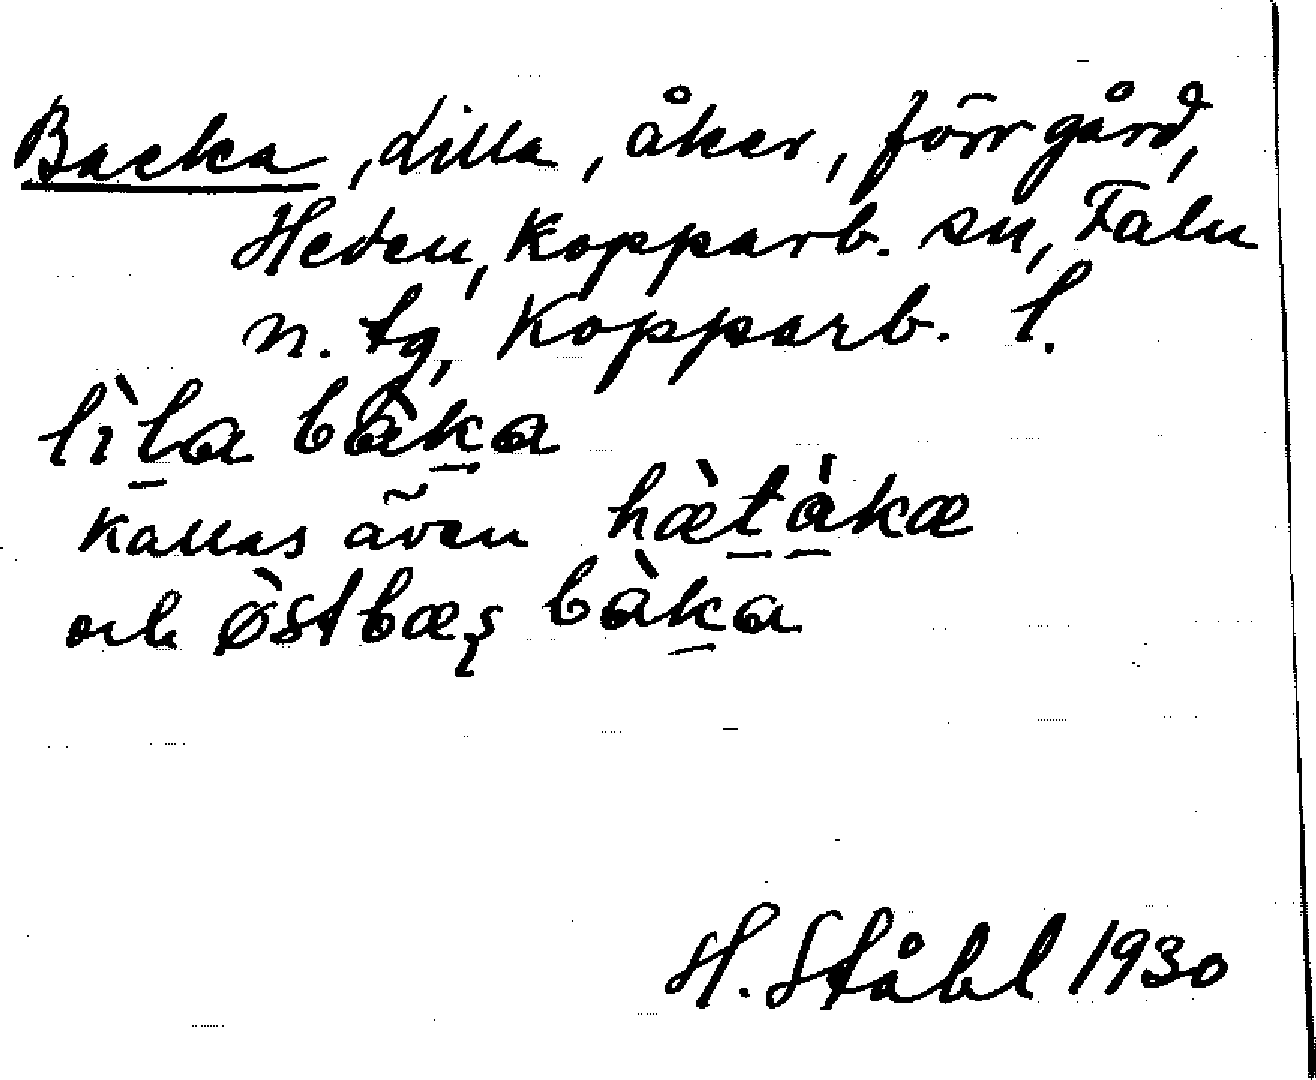 Backa, Lilla, åker, förr gård,
Heden, Kopparb. sn, Falu
n. tg, Kopparb. l.
lìl̠a bàk̠a
kallas även hæ̀t̠à̠kæ
och ø̀stbæʂ bàk̠a
H. Ståhl 1930